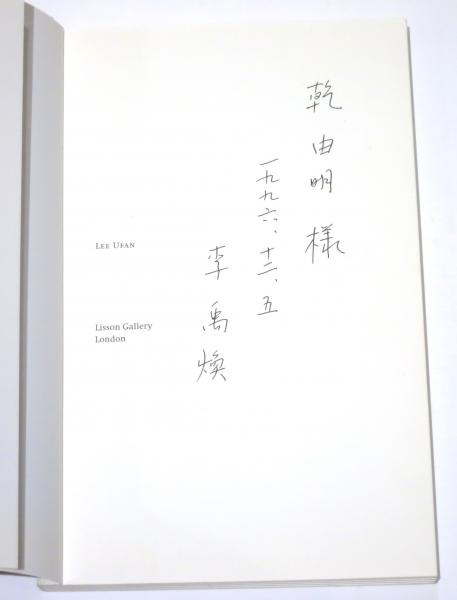 乾由明様
一九九六、十二、五
李禹煥
LEE UFAN
Lisson Gallery
London